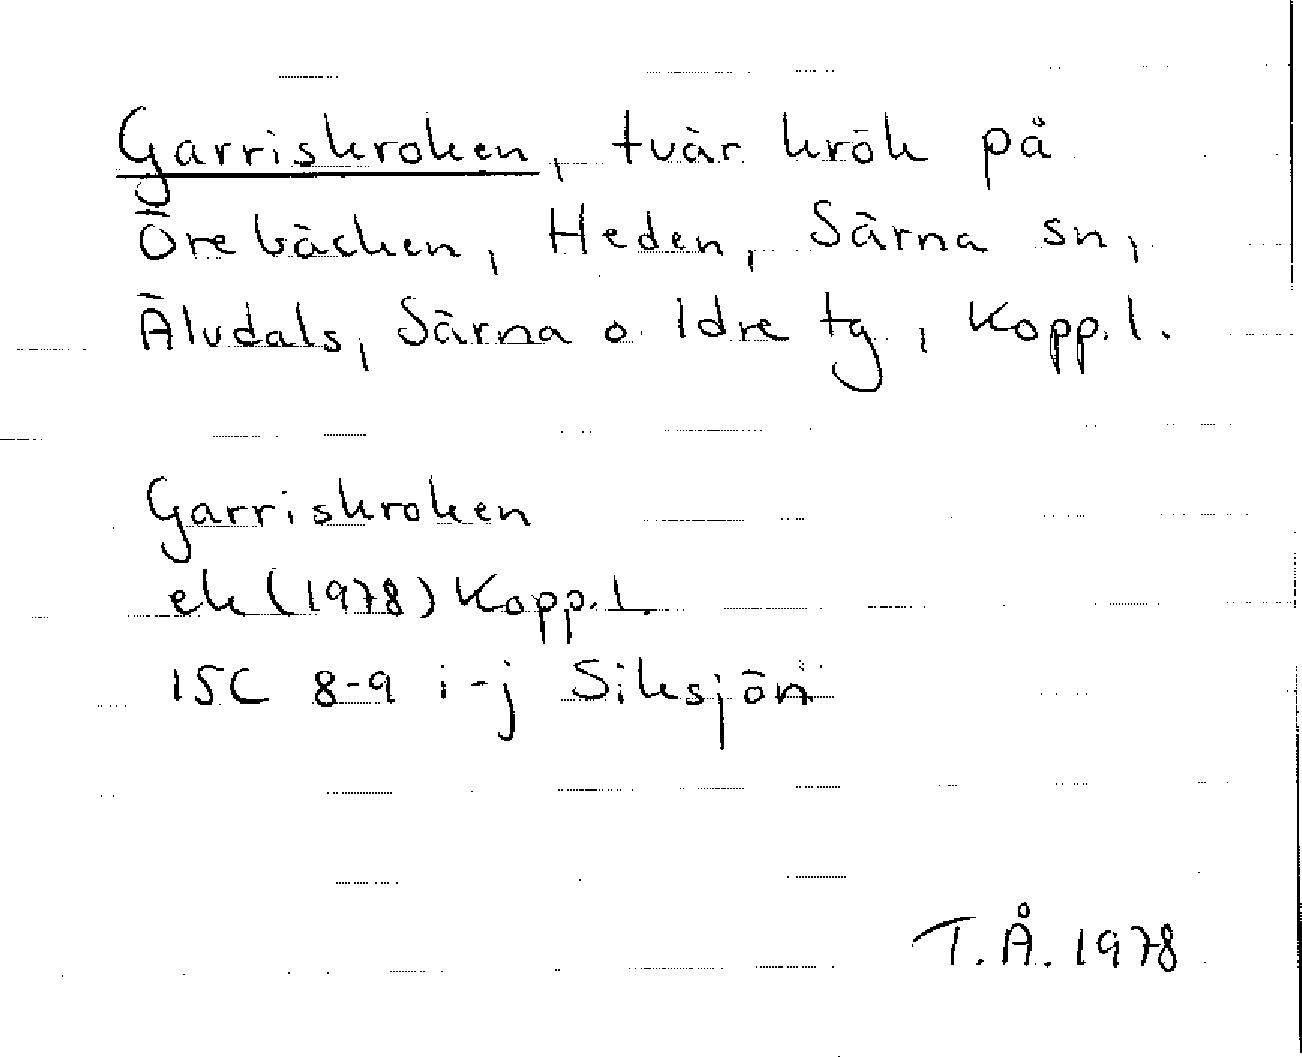 Garriskroken, tvär krök på
Örebäcken, Heden, Särna sn,
Älvdals, Särna o. Idre tg, Kopp. l.
Garriskroken
ek (1978) Kopp. l.
15C 8-9 i-j Siksjön
T.Å. 1978